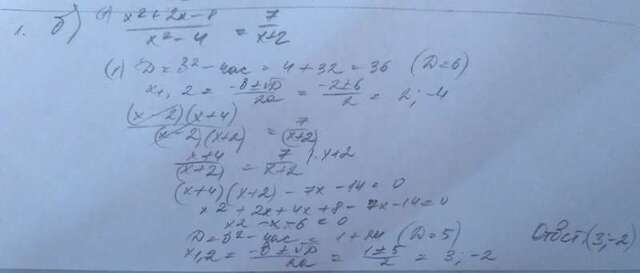 1. б) (1) x²+2x-8 / x²-4 = 7 / x+2
(1) D = B²-4ac = 4+32 = 36 (D=6)
x1,2 = -B±√D / 2a = -2±6 / 2 = 2; -4
(x-2)(x+4) / (x-2)(x+2) = 7 / (x+2)
x+4 / (x+2) = 7 / x+2 | · x+2
(x+4)(x+2) - 7x - 14 = 0
x²+2x+4x+8-7x-14=0
x2 - x - 6 = 0
D = B²-4ac = 1+24 (D=5)
x1,2 = -B±√D / 2a = 1±5 / 2 = 3; -2
Ответ (3;-2)